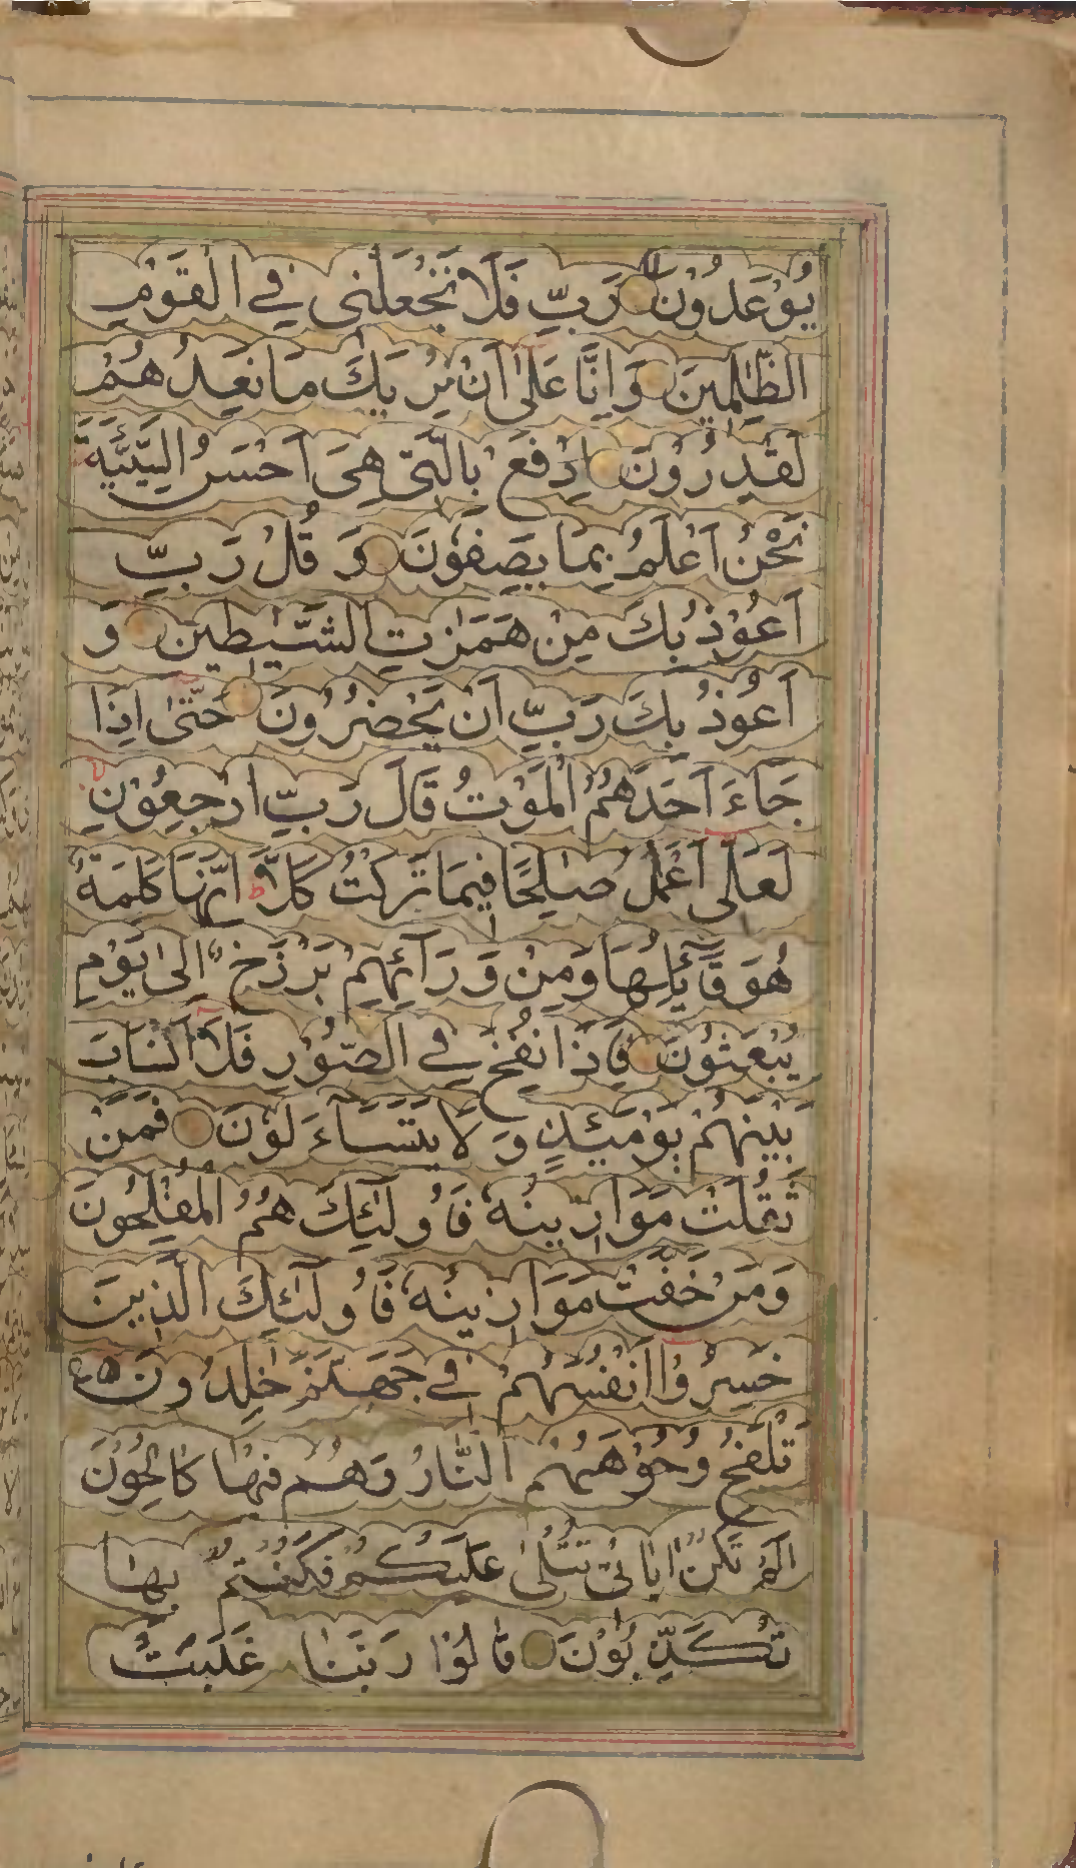 يُوْعَدُوْنَ رَبِّ فَلَا تَجْعَلْنِي فِي الْقَوْمِ
الظّٰلِمِيْنَ وَاِنَّا عَلٰى اَنْ نُرِيَكَ مَا نَعِدُهُمْ
لَقٰدِرُوْنَ اِدْفَعْ بِالَّتِيْ هِيَ اَحْسَنُ السَّيِّئَةَ
نَحْنُ اَعْلَمُ بِمَا يَصِفُوْنَ وَ قُلْ رَبِّ
اَعُوْذُ بِكَ مِنْ هَمَزٰتِ الشَّيٰطِيْنِ وَ
اَعُوْذُ بِكَ رَبِّ اَنْ يَحْضُرُوْنَ حَتّٰى اِذَا
جَاءَ اَحَدَهُمُ الْمَوْتُ قَالَ رَبِّ ارْجِعُوْنِ
لَعَلِّي اَعْمَلُ صٰلِحًا فِيْمَا تَرَكْتُ كَلَّا ط اِنَّهَا كَلِمَةٌ
هُوَ قَآئِلُهَا وَمِنْ وَرَآئِهِمْ بَرْزَخٌ اِلٰى يَوْمِ
يُبْعَثُوْنَ فَاِذَا نُفِخَ فِي الصُّوْرِ فَلَا اَنْسَابَ
بَيْنَهُمْ يَوْمَئِذٍ وَ لَا يَتَسَآءَلُوْنَ فَمَنْ
ثَقُلَتْ مَوَازِيْنُهٗ فَاُولٰئِكَ هُمُ الْمُفْلِحُوْنَ
وَمَنْ خَفَّتْ مَوَازِيْنُهٗ فَاُولٰئِكَ الَّذِيْنَ
خَسِرُوْا اَنْفُسَهُمْ فِي جَهَنَّمَ خٰلِدُوْنَ
تَلْفَحُ وُجُوْهَهُمُ النَّارُ وَهُمْ فِيْهَا كَالِحُوْنَ
اَلَمْ تَكُنْ اٰيَاتِيْ تُتْلٰى عَلَيْكُمْ فَكُنْتُمْ بِهَا
تُكَذِّبُوْنَ قَالُوْا رَبَّنَا غَلَبَتْ